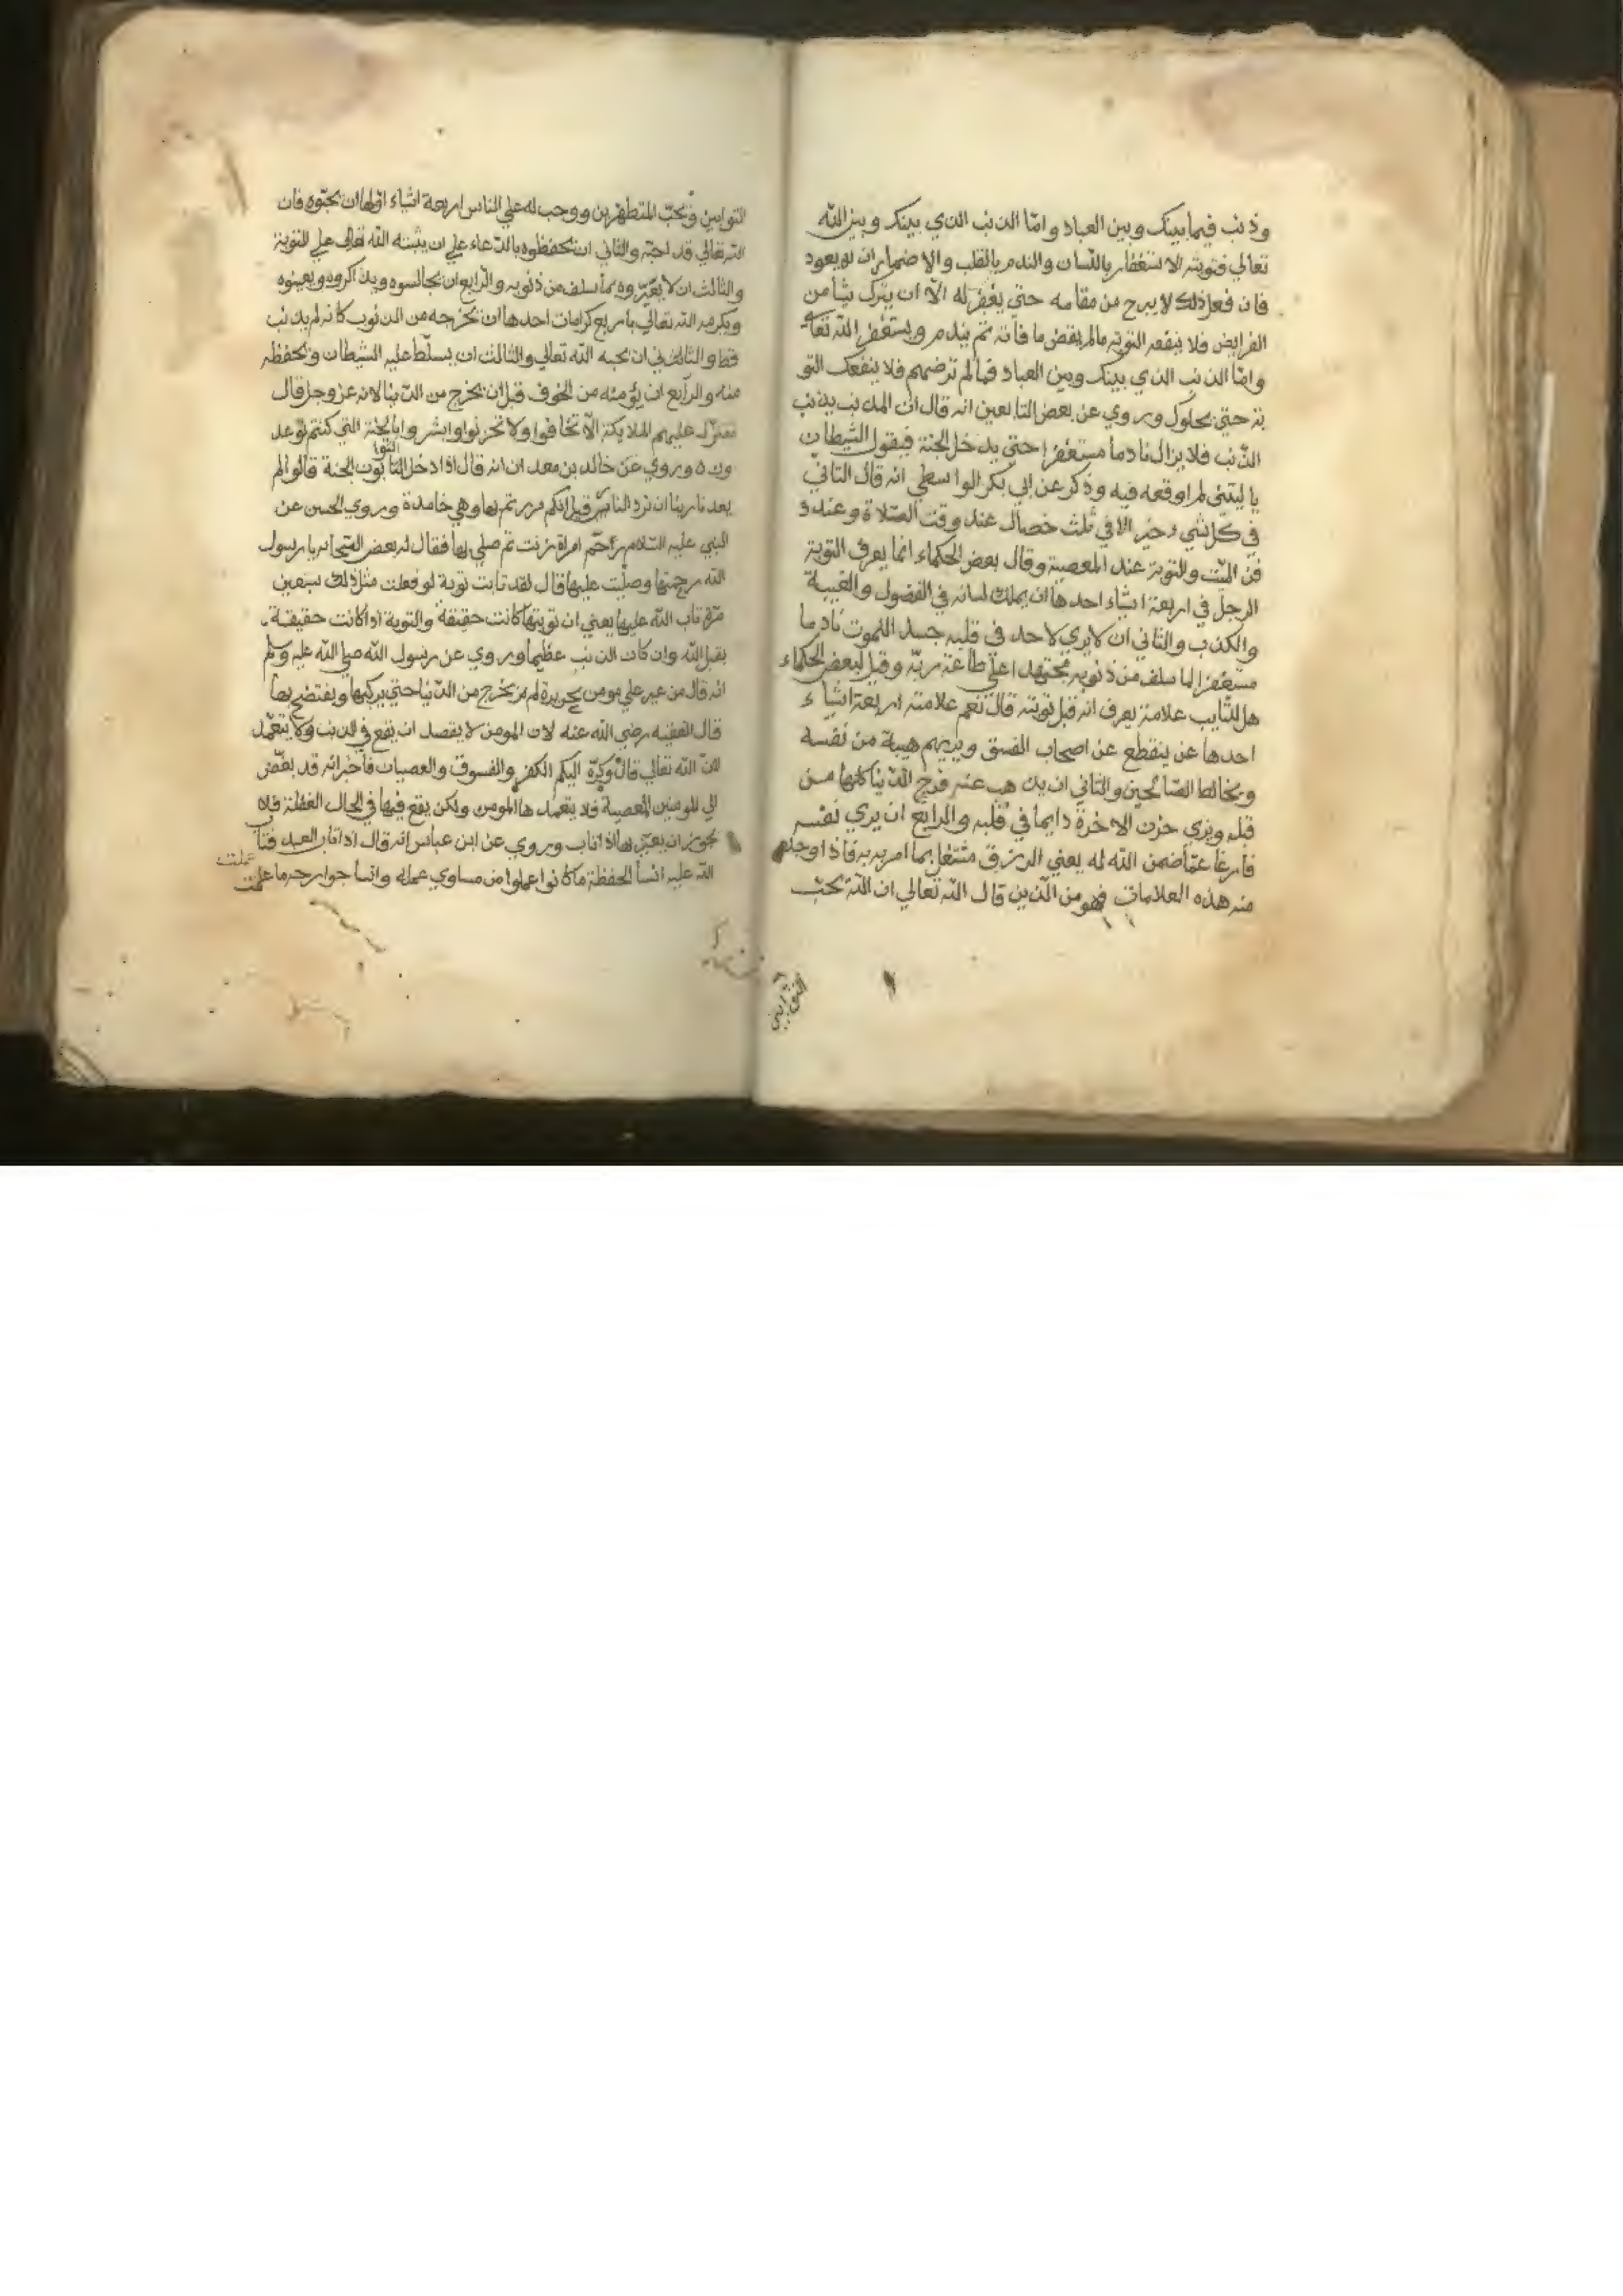 وذنب فيما بينك وبين العباد واما الذنب الذي بينك وبين الله
تعالي فتوبته الاستغفار باللسان والندم بالقلب والاضمار ان لا يعود
فان فعل ذلك لا يبرح من مقامه حتي يغفر له الا ان يترك شيأ من
الفرايض فلا ينفعه التوبة مالم يقض ما فاته ثم يندم ويستغفر الله تعالي
وامّا الذنب الذي بينك وبين العباد فما لم ترضهم فلا ينفعك التو
بة حتي يحلوك وروي عن بعض التابعين انه قال ان المذنب يذنب
الذنب فلا يزال نادما مستغفرا حتي يدخل الجنة فيقول الشيطان
يا ليتني لم اوقعه فيه وذكر عن ابي بكر الواسطي انه قال التاني
في كل شي حسن الا في ثلث خصال عند وقت الصلاة وعند د
فن الميّت والتوبة عند المعصية وقال بعض الحكماء انما يعرف التوبة
الرجل في اربعة اشياء احدها ان يملك لسانه في الفضول والغيبة
والكذب والثاني ان لا يري لاحد في قلبه حسد الموت نادما
مستغفرا لما سلف من ذنوبه مجتهدا علي طاعة ربّه وقيل لبعض الحكماء
هل للتايب علامة يعرف انه قبل توبته قال نعم علامته اربعة اشياء
احدها عن ينقطع عن اصحاب الفسق ويريهم هيبة من نفسه
ويخالط الصّالحين والثاني ان يذهب عنه فرح الدّنيا كلّها من
قبله ويري حزن الاخرة دايما في قلبه والرابع ان يري نفسه
فارغا عمّا ضمن الله له يعني الرزق مشتغلا بما امر به فاذا وجد
منه هذه العلامات فهو من الّذين قال الله تعالي ان الله يحبّ
التوابين
التوابين ويحبّ المتطهرين ووجب له علي الناس اربعة اشياء اولها ان يحبّوه فان
الله تعالي قد احبّه والثاني ان يحفظوه بالدّعاء علي ان يثبته الله تعالي علي التوبة
والثالث ان لا يعيّروه بما سلف من ذنوبه والرابع ان يجالسوه ويذاكروه ويعينوه
ويكرمه الله تعالي باربع كرامات احدها ان يخرجه من الذنوب كانه لم يذنب
قط والثاني ان يحبه الله تعالي والثالث ان يسلّط عليه الشيطان ويحفظه
منه والرابع ان يؤمنه من الخوف قبل ان يخرج من الدّنيا لانه عز وجل قال
تتنزل عليهم الملايكة الّا تخافوا ولا تحزنوا وابشروا بالجنة التي كنتم توعد
ون وروي عن خالد بن معدان انه قال اذا دخل التابون الجنة قالوا الم
يعدنا ربنا ان نرد النار قيل انكم مررتم بها وهي خامدة وروي الحسن عن
النبي عليه السّلام رحم امراة زنت ثم صلي بها فقال له بعض اصحابه يا رسول
الله رجمتها وصلّيت عليها قال لقد تابت توبة لو فعلت مثل ذلك سبعين
مرّة تاب الله عليها يعني ان توبتها كانت حقيقة والتوبة اذا كانت حقيقة
يقبل الله وان كان الذنب عظيما وروي عن رسول الله صلي الله عليه وسلم
انه قال من عير علي مومن بجريرة لم يخرج من الدّنيا حتي يركبها ويفتضح بها
قال الفقيه رضي الله عنه لان المومن لا يقصد ان يقع في الذنب ولا يتعمّد
لانّ الله تعالي قال وكرّه اليكم الكفر والفسوق والعصيان فاخبر انه قد بغّض
الي المومنين المعصية فلا يتعمّدها المومن ولكن يقع فيها في الحال الغفلة فلا
يجوز ان يعيّر بها اذا تاب وروي عن ابن عباس انه قال اذا تاب العبد فتاب
الله عليه انسأ الحفظة ما كانوا عملوا من مساوي عمله وانسأ جوارحه ما عملت
عملت